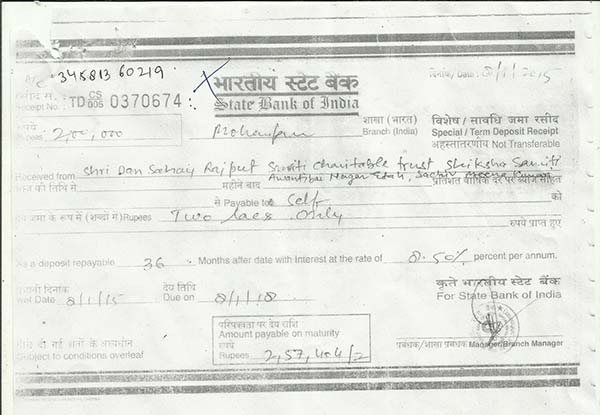 A/c 34581360219
रसीद सं.
Receipt No.: TD CS 005 0370674
भारतीय स्टेट बैंक
State Bank of India
दिनांक / Date : 8/1/2015
रुपये
Rupees 2,00,000
शाखा (भारत)
Branch (India)
विशेष / सावधि जमा रसीद
Special / Term Deposit Receipt
अहस्तातरणीय Not Transferable
Received from Shri Dan Sahay Rajput Smriti Charitable trust Shiksha Samiti
Awantibai Nagar Etah, Sachiv
महीने बाद प्रतिशत वार्षिक दर पर ब्याज सहित
से Payable to Self को
जमा के रूप में (शब्दों में) Rupees Two lacs only रुपये प्राप्त हुए
As a deposit repayable 36 Months after date with interest at the rate of 8.50% percent per annum.
प्रभावी दिनांक
wef Date 8/1/15
देय तिथि
Due on 8/1/18
कृते भारतीय स्टेट बैंक
For State Bank of India
परिपक्वता पर देय राशि
Amount payable on maturity
रुपये
Rupees 2,57,404/2
पीछे दी गई शर्तों के अध्यधीन
Subject to conditions overleaf
प्रबंधक/शाखा प्रबंधक Manager/Branch Manager